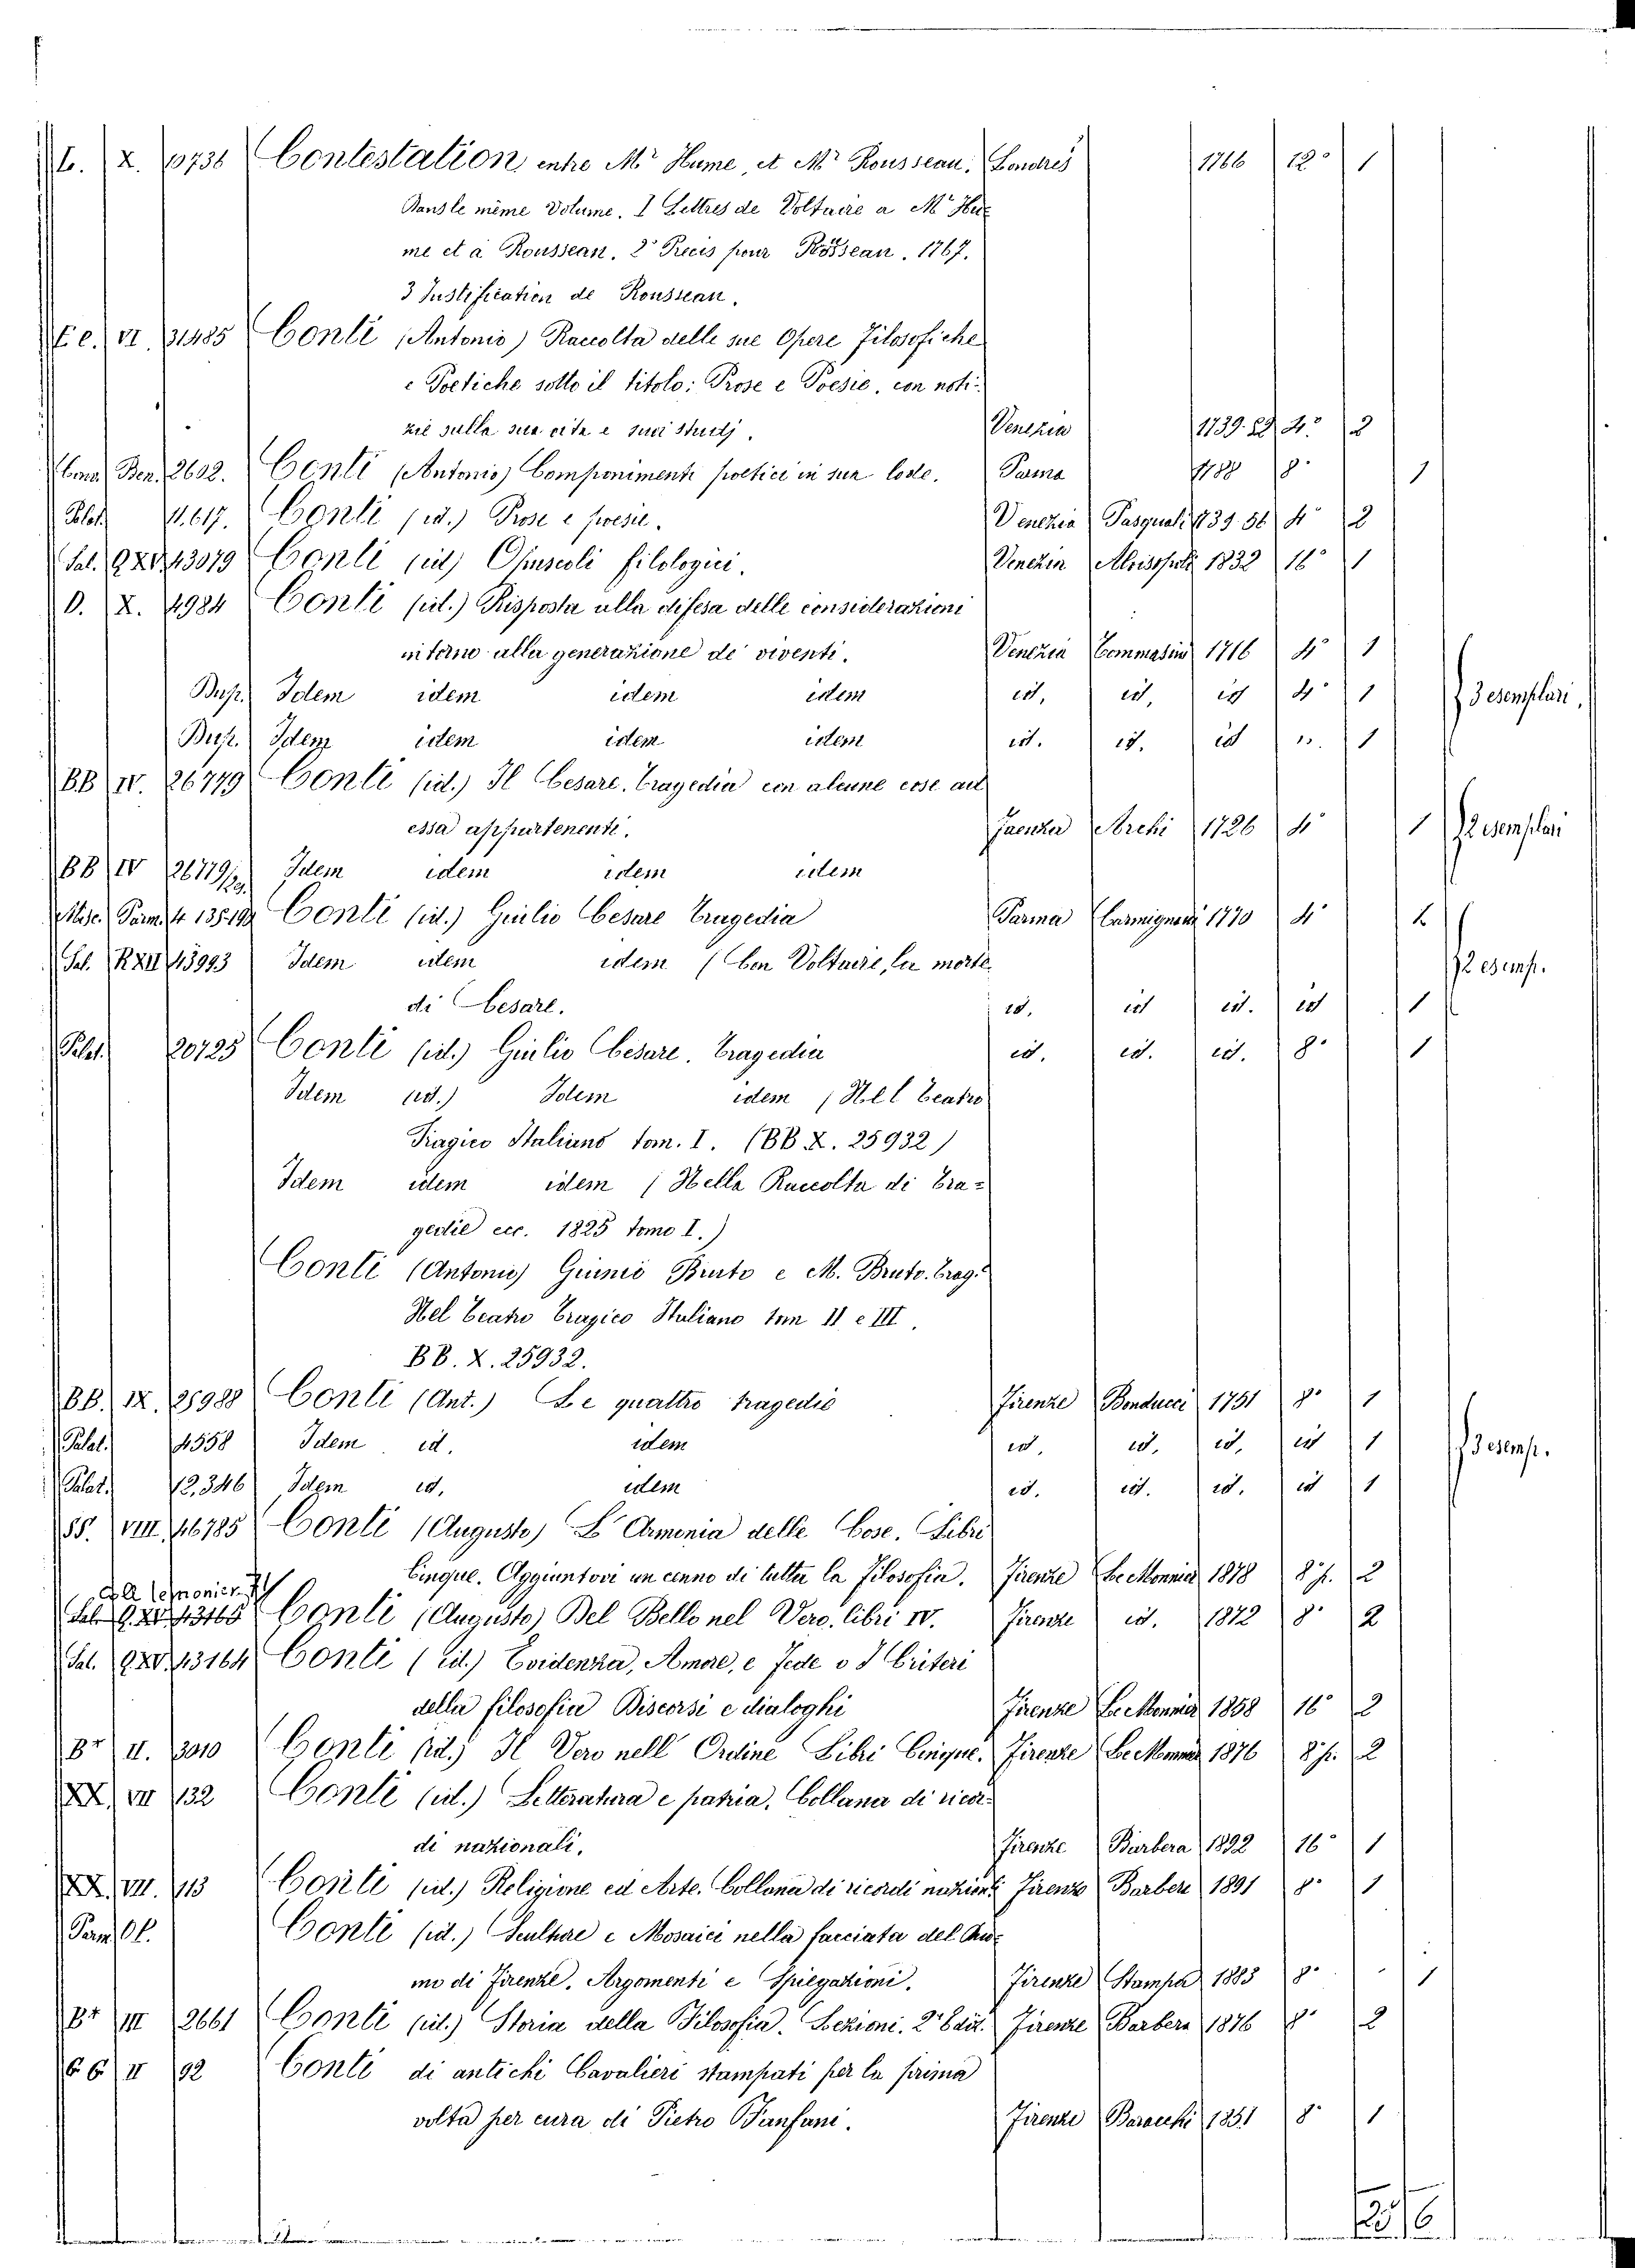 L. X. 10736 Contestation entre Mr Hume, et Mr Rousseau. Londres 1766 12° 1
Dans le même Volume. 1 Lettres de Voltaire a Mr Hu=
me et à Rousseau. 2° Precis pour Rosseau. 1767.
3 Justification de Rousseau.
E e. VI. 31485 Conti (Antonio) Raccolta delle sue Opere Filosofiche
e Poetiche sotto il titolo: Prose e Poesie, con noti-
zie sulla sua vita e suoi studj. Venezia 1739. 4° 2
Ben. 2692. Conti (Antonio) Componimenti poetici in sua lode. Parma 8° 1
Palat. 11.617. Conti (id.) Prose e poesie. Venezia Pasquali 1739.56 4° 2
Sal. Q XV. 43079 Conti (id) Opuscoli filologici. Venezia Alvisopoli 1832 16° 1
O. X. 4984 Conti (id.) Risposta alla difesa delle considerazioni
intorno alla generazione de' viventi. Venezia Tommasini 1716 4° 1
Bup. Idem idem idem idem id. id. id 4° 1 3 esemplari.
Bup. Idem idem idem idem id. id. id ". 1
BB IV. 26779 Conti (id.) Il Cesare. Tragedia con alcune cose ad
essa appartenenti. Faenza Archi 1726 4° 1 2 esemplari
BB IV 26779/29. Idem idem idem idem
Misc. Parm. 4° Conti (id.) Giulio Cesare Tragedia Parma Carmignani 1770 4° 1
Sal. R XII 45993 Idem idem idem (Con Voltaire, la morte
di Cesare. id. id id. id 1 2 esemp.
Palat. 20725 Conti (id.) Giulio Cesare. Tragedia id. id. id. 8° 1
Idem (id.) Idem idem (Nel Teatro
Tragico Italiano tom. I. (BB. X. 25932)
Idem idem idem (Nella Raccolta di Tra=
gedie ecc. 1825 tomo I.)
Conti (Antonio) Giunio Bruto e M. Bruto. Trag.
Nel Teatro Tragico Italiano tom II e III.
BB. X. 25932.
BB. IX. 25988 Conti (Ant.) Le quattro tragedie Firenze Bonducci 1751 8° 1
Palat. 4558 Idem id. idem id. id. id. id 1 3 esemp.
Palat. 12,346 Idem id. idem id. id. id. id 1
SS. VIII. 46785 Conti (Augusto) L'Armonia delle Cose. Libri
Cinque. Aggiuntovi un cenno di tutta la filosofia. Firenze Le Monnier 1878 8° p. 2
Sal. Q. XV. 43165 Conti (Augusto) Del Bello nel Vero. libri IV. Firenze id. 1872 8° 2
Sal. Q XV. 43164 Conti (id.) Evidenza, Amore, e Fede o I Criteri
della filosofia Discorsi e dialoghi Firenze Le Monnier 1858 16° 2
Br II. 3010 Conti (id.) Il Vero nell' Ordine Libri Cinque. Firenze Le Monnier 1876 8° p. 2
XX. VII 132 Conti (id.) Letteratura e patria. Collana di ricor-
di nazionali. Firenze Barbera 1892 16° 1
XX. VII. 113 Conti (id.) Religione ed Arte. Collana di ricordi nazionli Firenze Barbera 1891 8° 1
Parm. Conti (id.) Sculture e Mosaici nella facciata del Duo=
mo di Firenze. Argomenti e Spiegazioni. Firenze Stampa 1883 8° 1
Br III 2661 Conti (id.) Storia della Filosofia. Lezioni. 2a Ediz. Firenze Barbera 1876 8° 2
G G II 92 Conti di antichi Cavalieri stampati per la prima
volta per cura di Pietro Fanfani. Firenze Baracchi 1851 8° 1